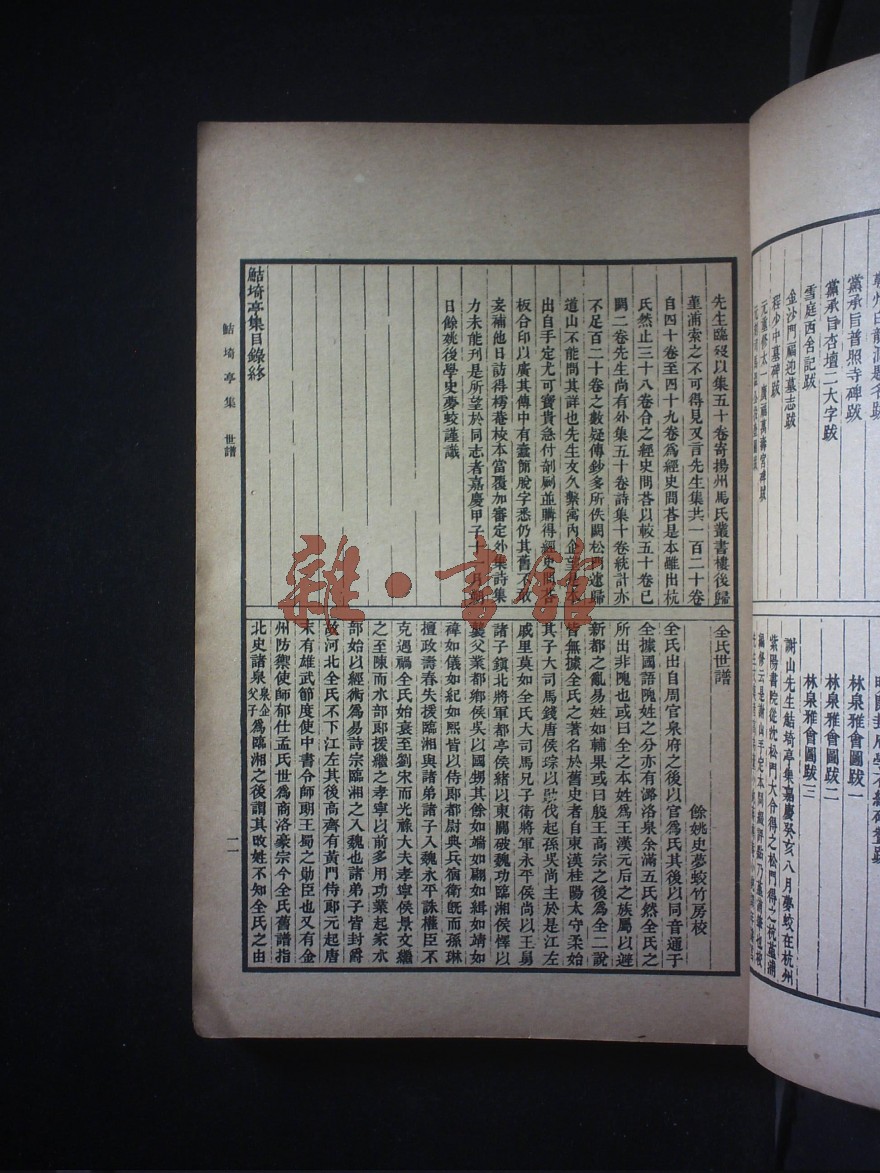 黨承旨普照寺碑跋
黨承旨杏壇二大字跋
雪庭西舍記跋
金沙門福迎墓志跋
程少中墓碑跋
林泉雅會圖跋一
林泉雅會圖跋二
林泉雅會圖跋三
謝山先生鮚埼亭集嘉慶癸亥八月夢蛟在杭州
紫陽書院從沈松門大令得之松門得之杭菫浦
先生臨歿以集五十卷寄揚州馬氏叢書樓後歸
菫浦索之不可得見又言先生集共一百二十卷
自四十卷至四十九卷為經史問荅是本雖出杭
氏然止三十八卷合之經史問荅以較五十卷已
闕二卷先生尚有外集五十卷詩集十卷統計亦
不足百二十卷之數疑傳鈔多所佚闕松門遠歸
道山不能問其詳也先生文久繫寓內企望是本
出自手定尤可寶貴急付剞劂並購得經史問荅
板合印以廣其傳中有蠹蝕脫字悉仍其舊不敢
妄補他日訪得樗菴校本當覆加審定外集詩集
力未能刊是所望於同志者嘉慶甲子十一月朔
日餘姚後學史夢蛟謹識
鮚埼亭集目錄終
全氏世譜
餘姚史夢蛟竹房校
全氏出自周官泉府之後以官為氏其後以同音通于
全據國語隗姓之分亦有潞洛泉余滿五氏然全氏之
所出非隗也或曰全之本姓為王漢元后之族屬以避
新都之亂易姓如輔果或曰殷王高宗之後為全二說
皆無據全氏之著名於舊史者自東漢桂陽太守柔始
其子大司馬錢唐侯琮以勛伐起孫吳尚主於是江左
戚里莫如全氏大司馬兄子衛將軍永平侯尚以王舅
諸子鎮北將軍都亭侯緒以東關破魏功臨湘侯懌以
襲父業都鄉侯吳以國甥其餘如端如翩如緝如靖如
禕如儀如紀如熙皆以侍郎都尉典兵宿衛旣而孫琳
擅政壽春失援臨湘與諸弟諸子入魏永平誅權臣不
克遇禍全氏始衰至劉宋而光祿大夫孝寧侯景文繼
之至陳而水部郎援繼之孝寧以前多用功業起家水
部始以經術為易詩宗臨湘之入魏也諸弟子皆封爵
故河北全氏不下江左其後高齊有黃門侍郎元起唐
末有雄武節度使中書令師朗王蜀之勛臣也又有金
州防禦使師郁仕孟氏世為商洛豪宗今全氏舊譜指
北史諸泉泉企父子為臨湘之後謂其改姓不知全氏之由
鮚埼亭集 世譜
一